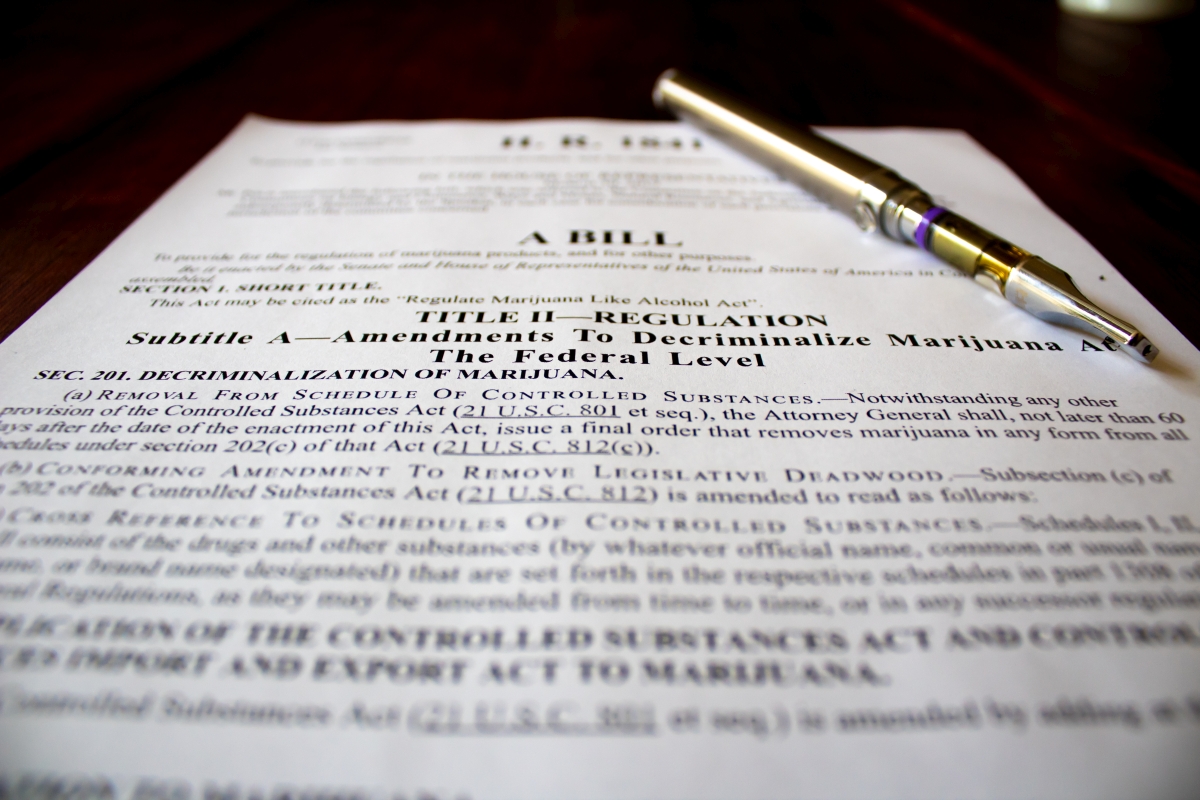 H. R. 1841
A BILL
To provide for the regulation of marijuana products, and for other purposes.
Be it enacted by the Senate and House of Representatives of the United States of America in
assembled,
SECTION 1. SHORT TITLE.
This Act may be cited as the “Regulate Marijuana Like Alcohol Act”.
TITLE II—REGULATION
Subtitle A—Amendments To Decriminalize Marijuana At
The Federal Level
SEC. 201. DECRIMINALIZATION OF MARIJUANA.
(a) REMOVAL FROM SCHEDULE OF CONTROLLED SUBSTANCES.—Notwithstanding any other
provision of the Controlled Substances Act (21 U.S.C. 801 et seq.), the Attorney General shall, not later than 60
ays after the date of the enactment of this Act, issue a final order that removes marijuana in any form from all
hedules under section 202(c) of that Act (21 U.S.C. 812(c)).
(b) CONFORMING AMENDMENT TO REMOVE LEGISLATIVE DEADWOOD.—Subsection (c) of
202 of the Controlled Substances Act (21 U.S.C. 812) is amended to read as follows:
CROSS REFERENCE TO SCHEDULES OF CONTROLLED SUBSTANCES.—Schedules I, II,
consist of the drugs and other substances (by whatever official name, common or usual
or brand name designated) that are set forth in the respective schedules in part 1308
Regulations, as they may be amended from time to time, or in any successor
OF THE CONTROLLED SUBSTANCES ACT AND
IMPORT AND EXPORT ACT TO MARIJUANA.
Controlled Substances Act (21 U.S.C. 801 et seq.) is amended by adding at